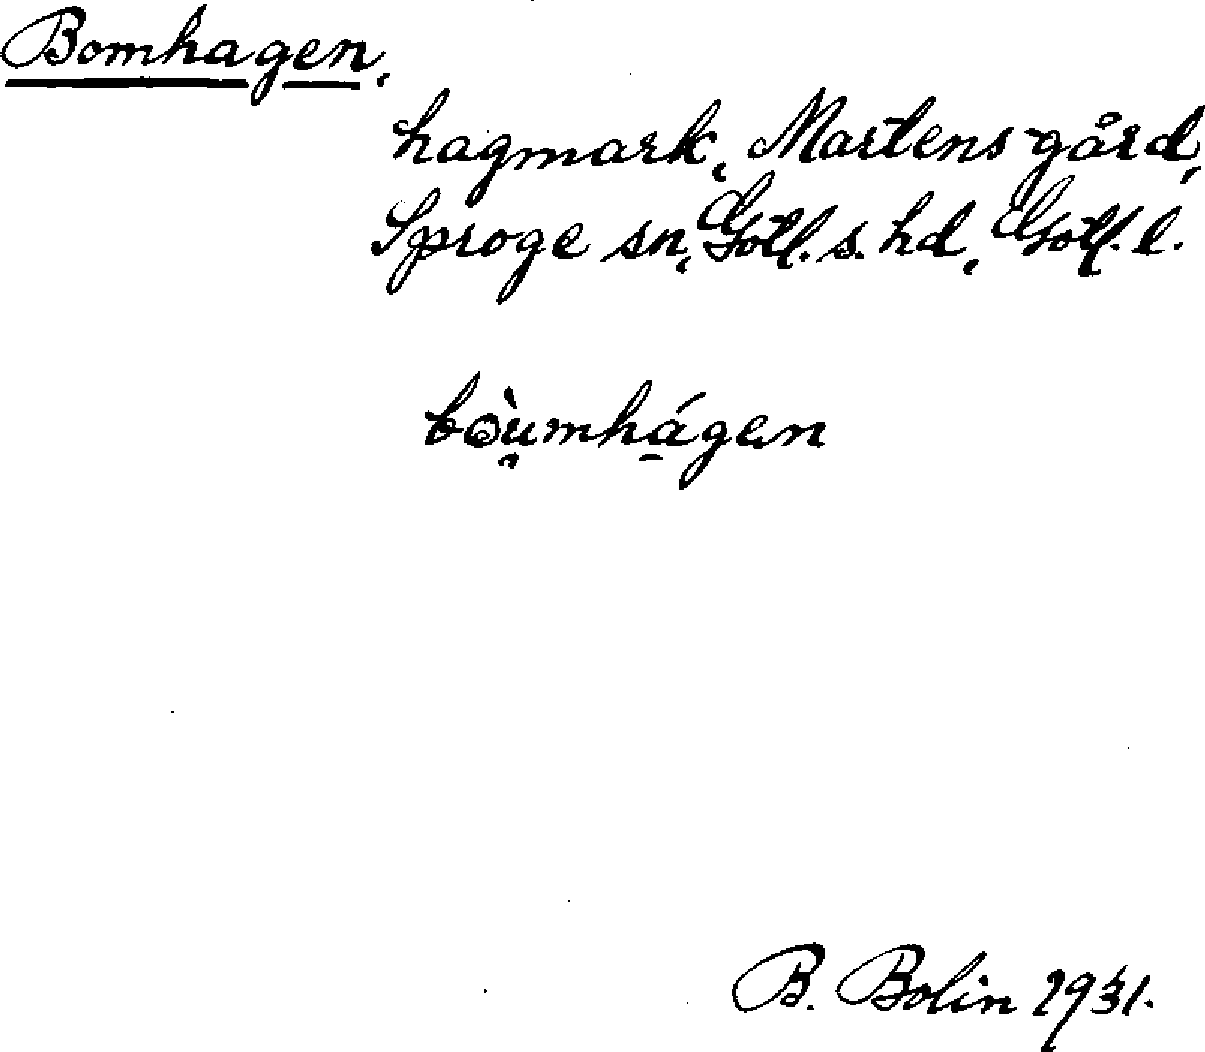 Bomhagen,
hagmark, Martens-gård,
Sproge sn, Gotl. s. hd, Gotl. l.
bòu̯mhágen
B. Bolin 1931.